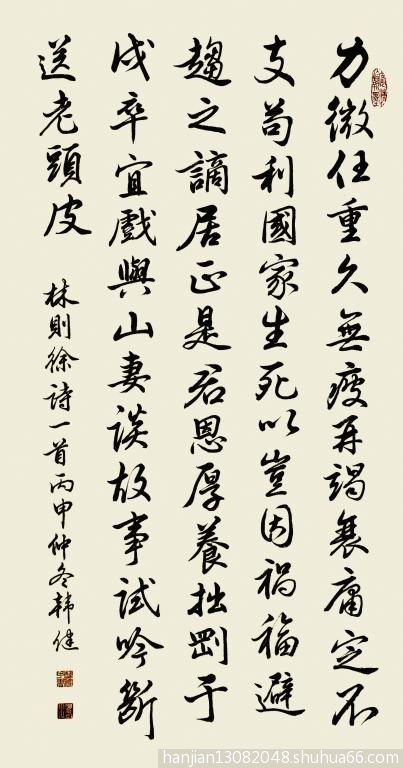 力微任重久無疲再竭衰庸定不
支苟利國家生死以豈因禍福避
趨之謫居正是君恩厚養拙剛于
戍卒宜戲與山妻談故事試吟斷
送老頭皮
林則徐詩一首丙申仲冬韓健
hanjian13082048.shuhua66.com